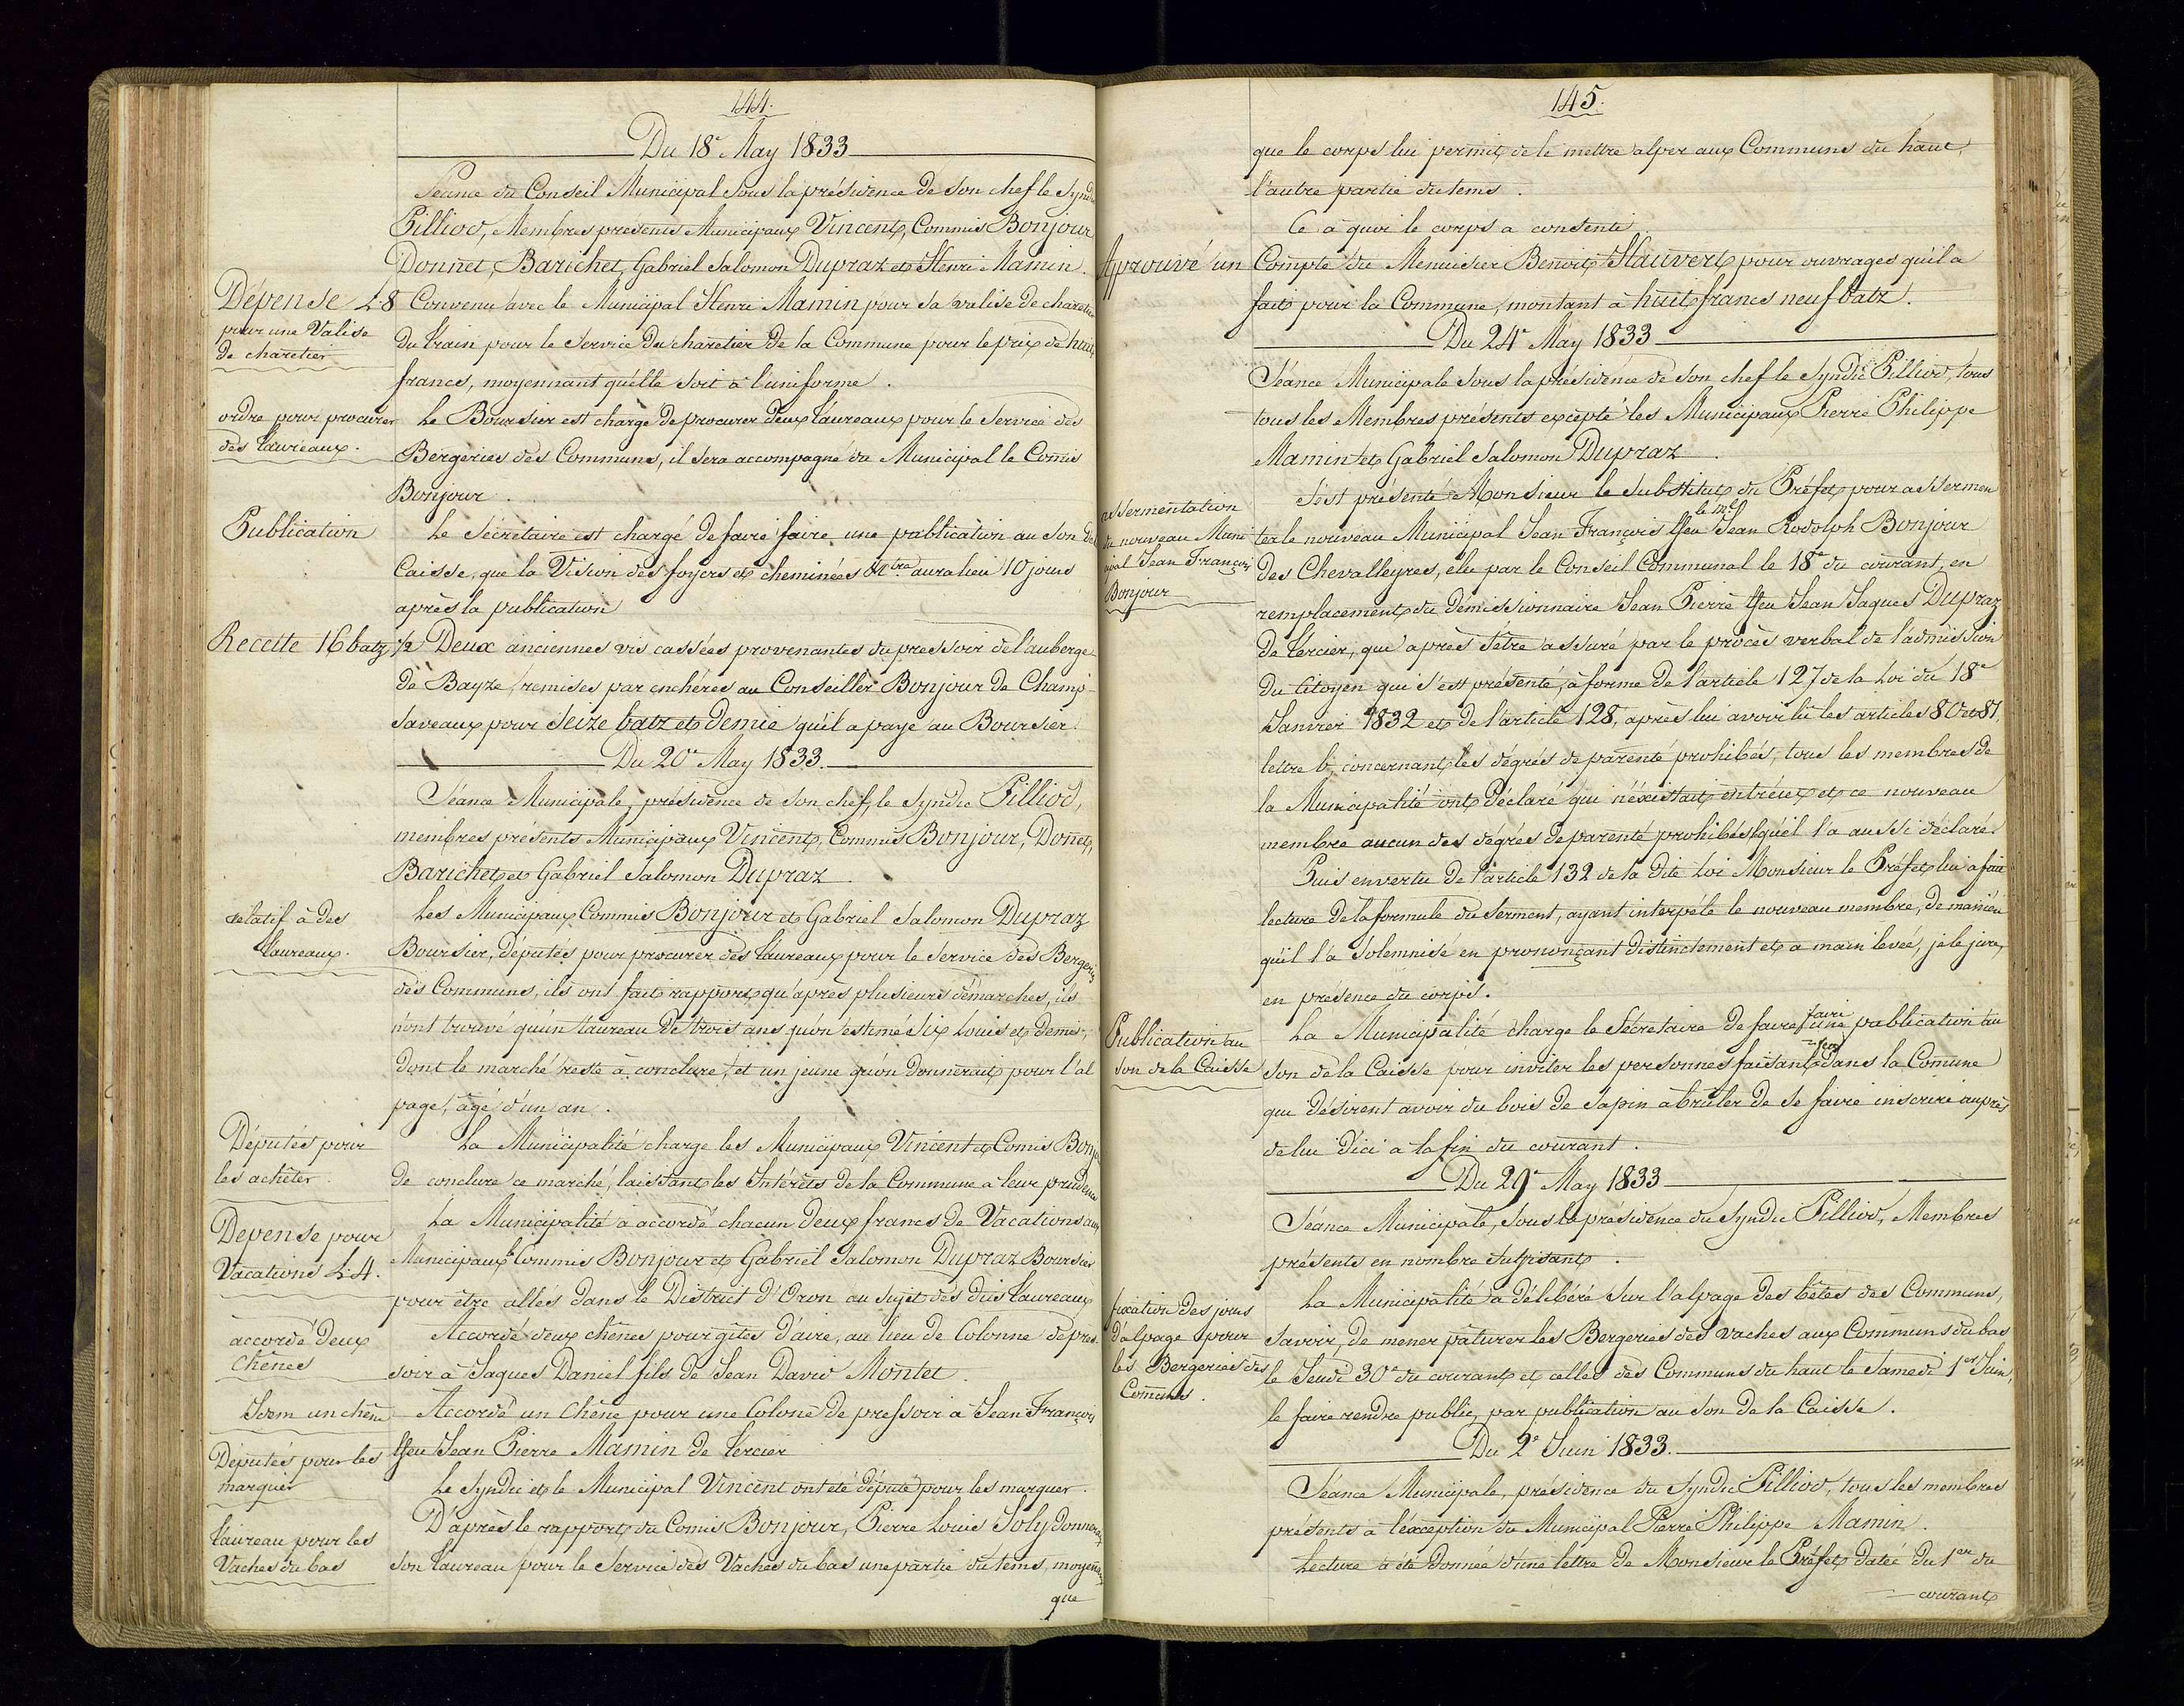 144.
Du 18e May 1833
Séance du Conseil Municipal sous la présidence de son chef le Syndic
Pilliod, Membres présents Municipaux Vincent, Commis Bonjour
Donnet, Barichet, Gabriel Salomon Dupraz et Henri Mamin.
Dépense L. 8
pour une Valise
de charetier
Convenu avec le Municipal Henri Mamin pour sa valise de charetier
du train pour le service du charetier de la Commune pour le prix de huit
francs, moyennant qu'elle soit à l'uniforme.
ordre pour procurer
des taureaux.
Le Boursier est chargé de procurer deux taureaux pour le service des
Bergeries des Communs, il sera accompagné du Municipal le Comis
Bonjour.
Publication
Le Sécrétaire est chargé de faire faire une publication au son de
Caisse, que la Vision des foyers et cheminées &tra aura lieu 10 jours
après la publication
Recette 16 batz ½
Deux anciennes vis cassées provenantes du pressoir de l'auberge
de Bayze, remises par enchéres au Conseiller Bonjour de Champ-
saveaux pour seize batz et demie qu'il a payé au Boursier.
Du 20e May 1833.
Séance Municipale, présidence de son chef, le Syndic Pilliod,
membres présents Municipaux Vincent, Commis Bonjour, Donet,
Barichet et Gabriel Salomon Dupraz.
relatif à des
taureaux.
Les Municipaux Commis Bonjour et Gabriel Salomon Dupraz
Boursier, députés pour procurer des taureaux pour le service des Bergeries
des Communs, ils ont fait rapport qu'après plusieurs démarches, ils
n'ont trouvé qu'un taureau de trois ans qu'on éstimé six Louis et demis,
dont le marché reste à conclure, et un jeune qu'on donnerait pour l'al
page, âgé d'un an.
Députés pour
les achêter.
La Municipalité charge les Municipaux Vincent et Comis Bonjour
de conclure ce marché, laissant les Intérêts de la Commune à leur prudence
Depense pour
Vacations L. 4.
La Municipalité a accordé chacun deux francs de Vacations aux
Municipaux le Commis Bonjour et Gabriel Salomon Dupraz Boursier
pour être allés dans le District d'Oron au sujet des dits taureaux
accordé deux
chênes
Accordé deux chênes pour gîtes d'aire, au lieu de Colonne de pres-
soir à Jaques Daniel fils de Jean David Montet.
Idem un chêne
Accordé un Chêne pour une Colonē de pressoir à Jean François
ffeu Jean Pierre Mamin de Tercier
Députés pour les
marquer
Le Syndic et le Municipal Vincent ont été député pour les marquer.
Taureau pour les
Vaches du bas
D'après le rapport du Comis Bonjour, Pierre Louis Joly donnerait
son taureau pour le service des Vaches du bas une partie du tems, moyenant
que
145.
que le corps lui permit de le mettre alper aux Communs du haut,
l'autre partie du tems.
Ce à quoi le corps a consenti.
Aprouvé un Compte du Menuisier Benoit Hauvert pour ouvrages qu'il a
fait pour la Commune, montant à huit francs neuf batz.
Du 24e May 1833
Séance Municipale sous la présidence de son chef le Syndic Pilliod, tous
tous les Membres présents excepté les Municipaux Pierre Philippe
Mamin et Gabriel Salomon Dupraz.
assermentation
du nouveau Muni
cipal Jean François
Bonjour
S'est présenté Monsieur le Substitut du Préfet pour assermen
ter le nouveau Municipal Jean François ffeu Jean Rodolph Bonjour
des Chevalleyres, élu par le Conseil Communal le 18e du courant, en
remplacement du démissionnaire Jean Pierre ffeu Jean Jaques Dupraz
de Tercier, que après s'être assuré par le procès verbal de l'admission
du Citoyen qui s'est présenté, à forme de l'article 127 de la Loi du 18e
Janvier 1832 et de l'article 128, après lui avoir lu les articles 80 et 81,
lettre b, concernant les dégrés de parenté prohibés, tous les membres de
la Municipalité ont déclaré qui n'éxistait entr'eux et ce nouveau
membre aucun des dégrés de parenté prohibés, qu'il l'a aussi déclaré.
Puis en vertu de l'article 132 de la dite Loi Monsieur le Préfet lui a fait
lecture de la formule du Serment, ayant interpélé le nouveau membre, de manière
qu'il l'a solemnisé en prononçant distinctement et à main levée, je le jure,
en présence du corps.
Publication au
son de la Caisse
La Municipalité charge le Sécretaire de faire faire une publication au
son de la Caisse pour inviter les personnes faisant feu dans la Comune
qui désirent avoir du bois de sapin à brûler de se faire inscrire auprès
de lui d'ici à la fin du courant.
Du 29e May 1833
Séance Municipale, sous la présidence du Syndic Pilliod, Membres
présents en nombre sufisant.
fixation des jours
d'alpage pour
les Bergeries des
Comuns.
La Municipalité a délibéré sur l'alpage des bêtes des Communs,
savoir, de mener pâturer les Bergeries des vaches aux Communs du bas
le Jeudi 30e du courant et celles des Communs du haut le Samedi 1er Juin,
le faire rendre public, par publication au son de la Caisse.
Du 2e Juin 1833.
Séance Municipale, présidence du Syndic Pilliod, tous les membres
présents à l'exception du Municipal Pierre Philippe Mamin.
Lecture a été donnée d'une lettre de Monsieur le Préfet datée du 1er du
courant